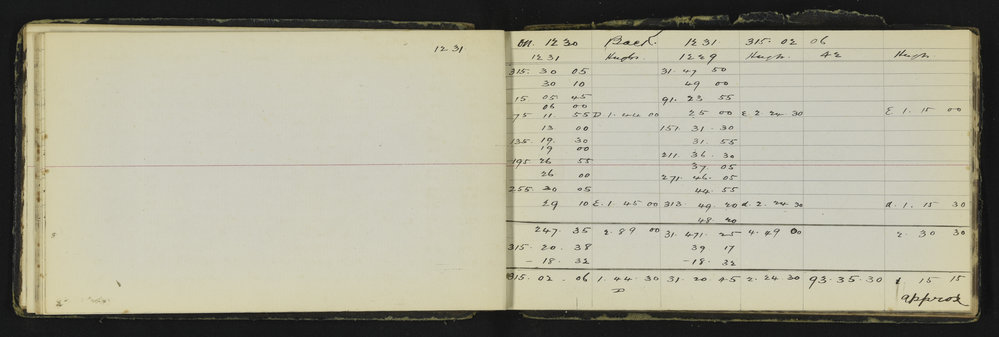 12 31
on. 12 30 Back 12 31 315. 02 06
12 31 Heights. 12 29 Heigh. Az Heigh
315. 30 05 31. 47 50
30 10 49 00
15. 05 45 91. 23 55
06 00
75 11 55 D. 1. 44 00 25 00 E. 2. 24. 30 E. 1. 15 00
13 00 151. 31. 30
135. 19. 30 31. 55
19 00
195. 26 55 211. 36. 30
37. 05
26 00 271. 46. 05
255. 30 05 44. 55
29 10 E. 1. 45 00 313. 49. 20 d. 2. 24 30 d. 1. 15 30
48 20
247. 35 2. 89 00 31. 471. 25 4. 49 00 2. 30 30
315. 20. 38 39 17
- 18. 32 - 18. 32
315. 02. 06 1. 44. 30 31. 20 45 2. 24 30 93. 35. 30 1 15 15
D approx